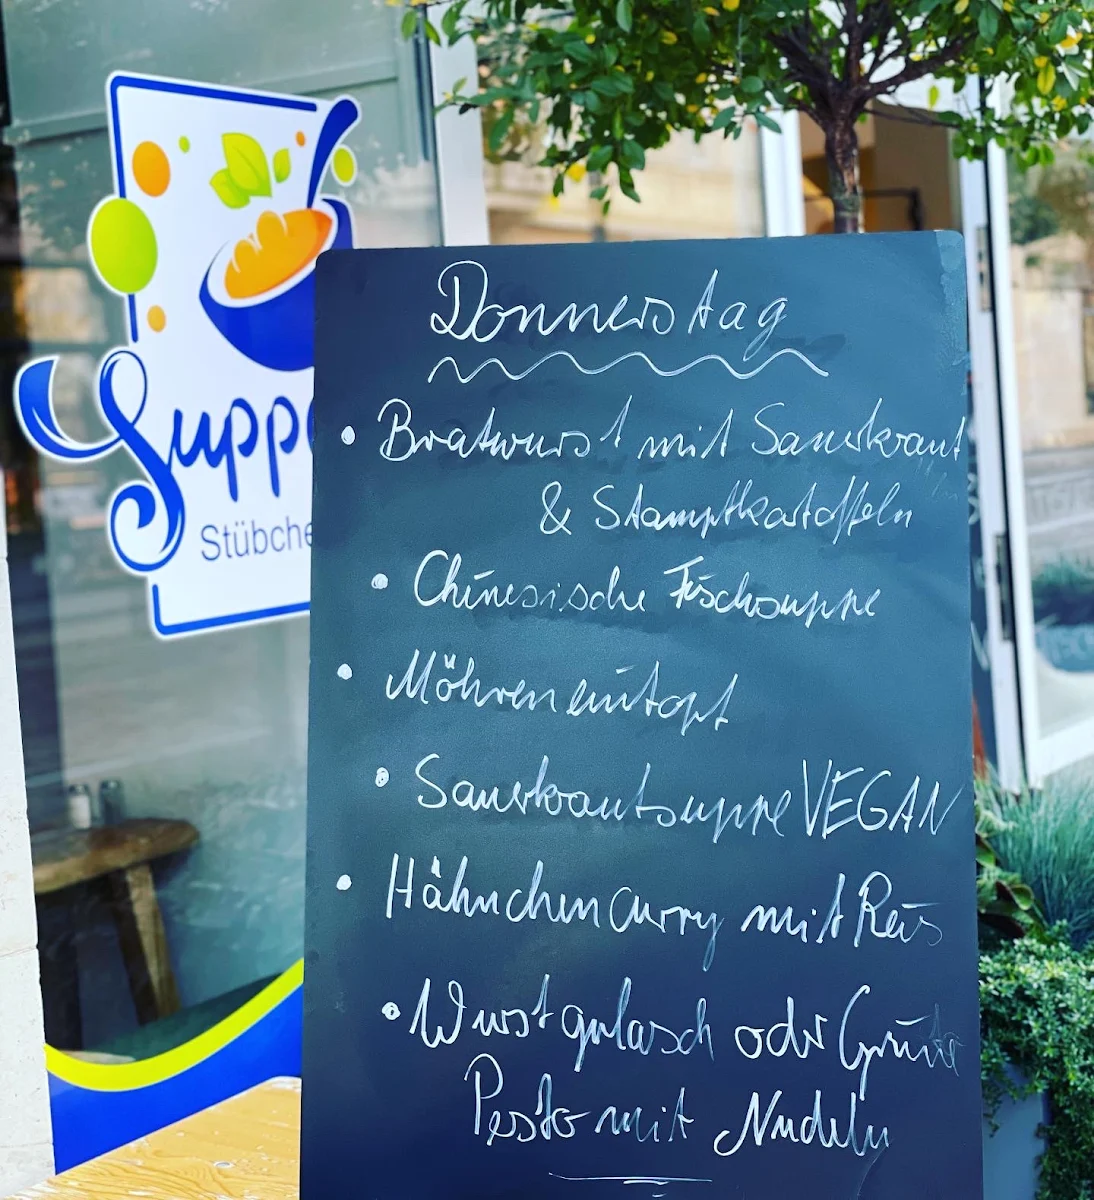 Suppe
Stübche
Donnerstag
• Bratwurst mit Sauerkraut
& Stampfkartoffeln
• Chinesische Fischsuppe
• Möhreneintopf
• Sauerkrautsuppe VEGAN
• Hähnchencurry mit Reis
• Wurstgulasch oder Grünes
Pesto mit Nudeln